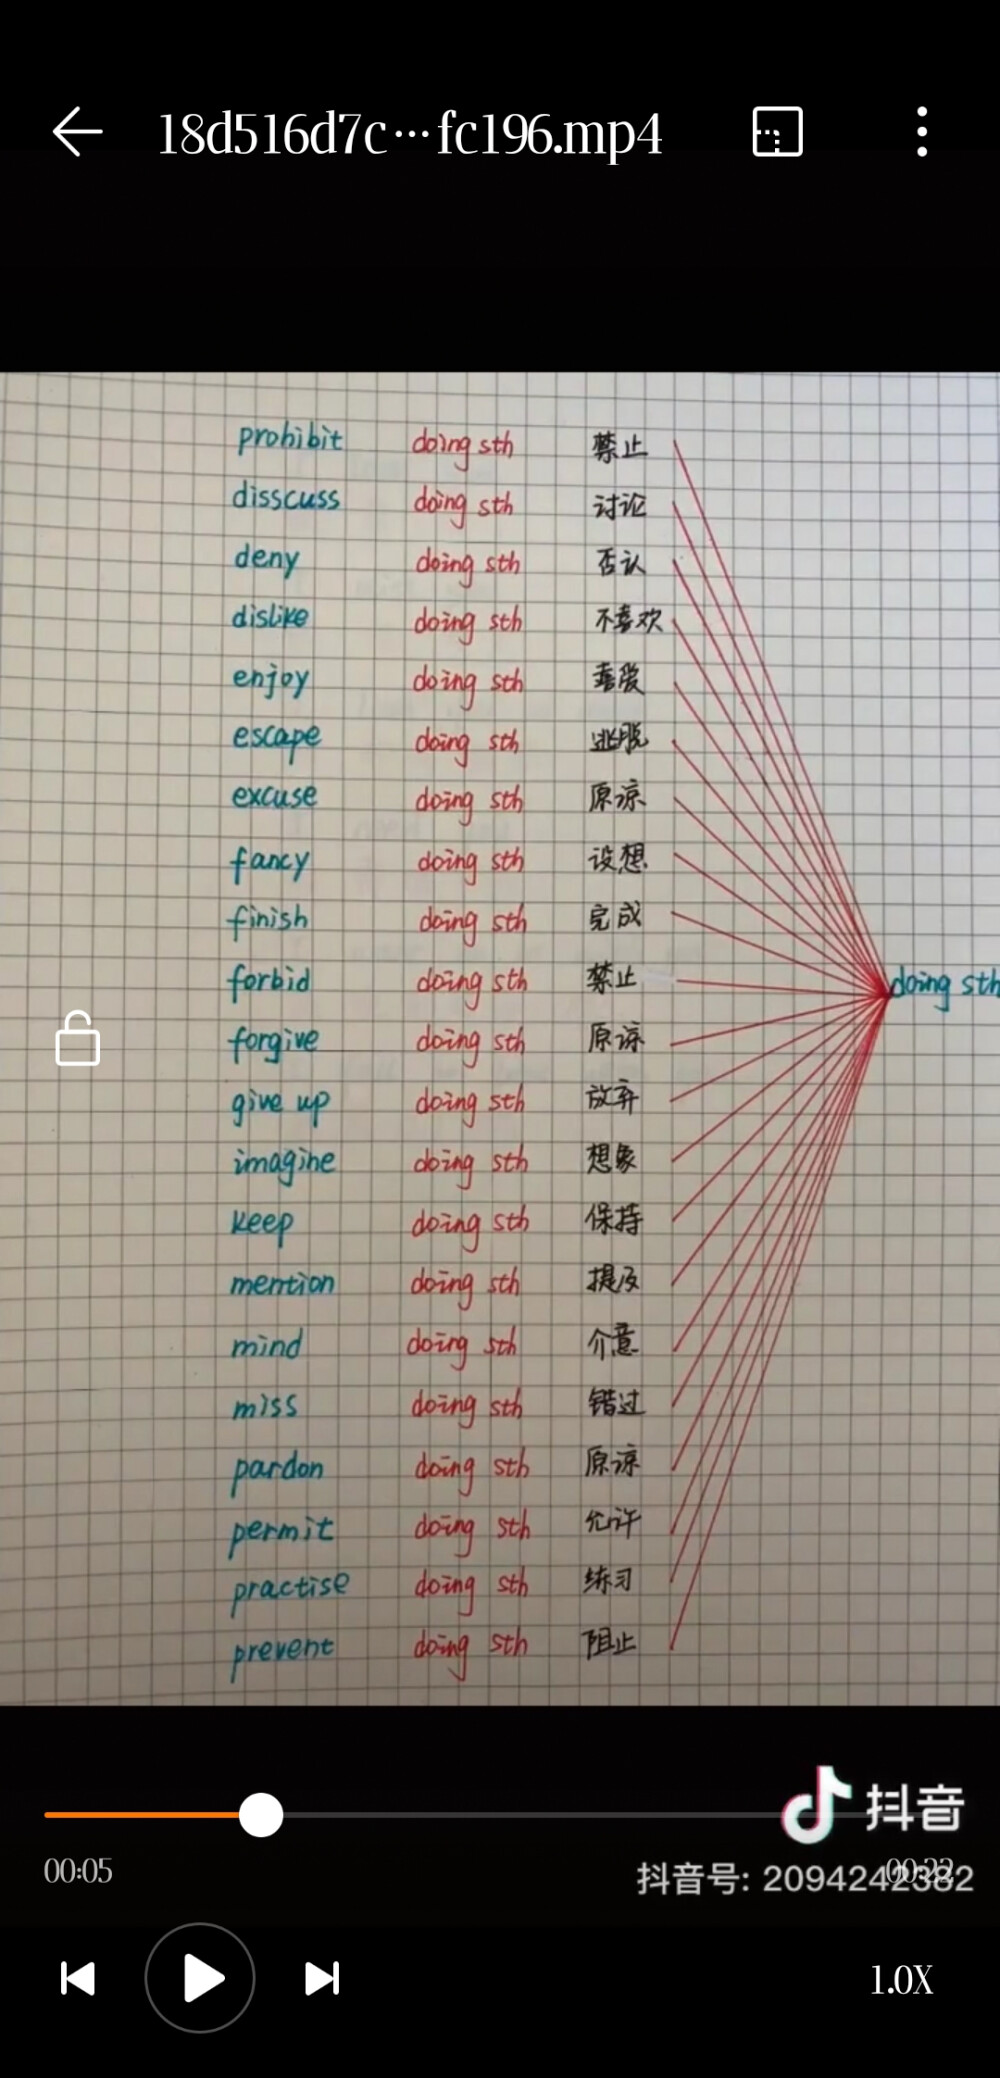 18d516d7c···fc196.mp4
prohibit doing sth 禁止
disscuss doing sth 讨论
deny doing sth 否认
dislike doing sth 不喜欢
enjoy doing sth 喜爱
escape doing sth 逃脱
excuse doing sth 原谅
fancy doing sth 设想
finish doing sth 完成
forbid doing sth 禁止
doing sth
forgive doing sth 原谅
give up doing sth 放弃
imagine doing sth 想象
keep doing sth 保持
mention doing sth 提及
mind doing sth 介意
miss doing sth 错过
pardon doing sth 原谅
permit doing sth 允许
practise doing sth 练习
prevent doing sth 阻止
抖音
00:05 00:22
抖音号: 2094242382
1.0X